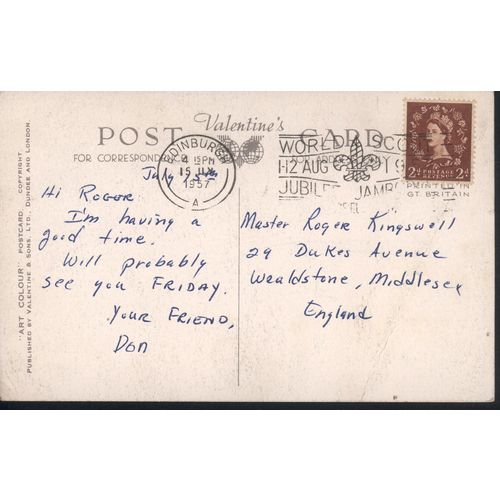 POST CARD
Valentine's
FOR CORRESPONDENCE
EDINBURGH
4 15PM
15 JLY
1957
A
WORLD SCOUT
1-12 AUG
JUBILEE JAMB
2D POSTAGE REVENUE 2D
PRINTED IN
GT. BRITAIN
July 15
Hi Roger:
I'm having a
good time.
Will probably
see you FRIDAY.
YOUR FRIEND,
Don
Master Roger Kingswell
29 Dukes Avenue
Wealdstone, Middlesex
England
"ART COLOUR" POSTCARD. COPYRIGHT.
PUBLISHED BY VALENTINE & SONS, LTD., DUNDEE AND LONDON.